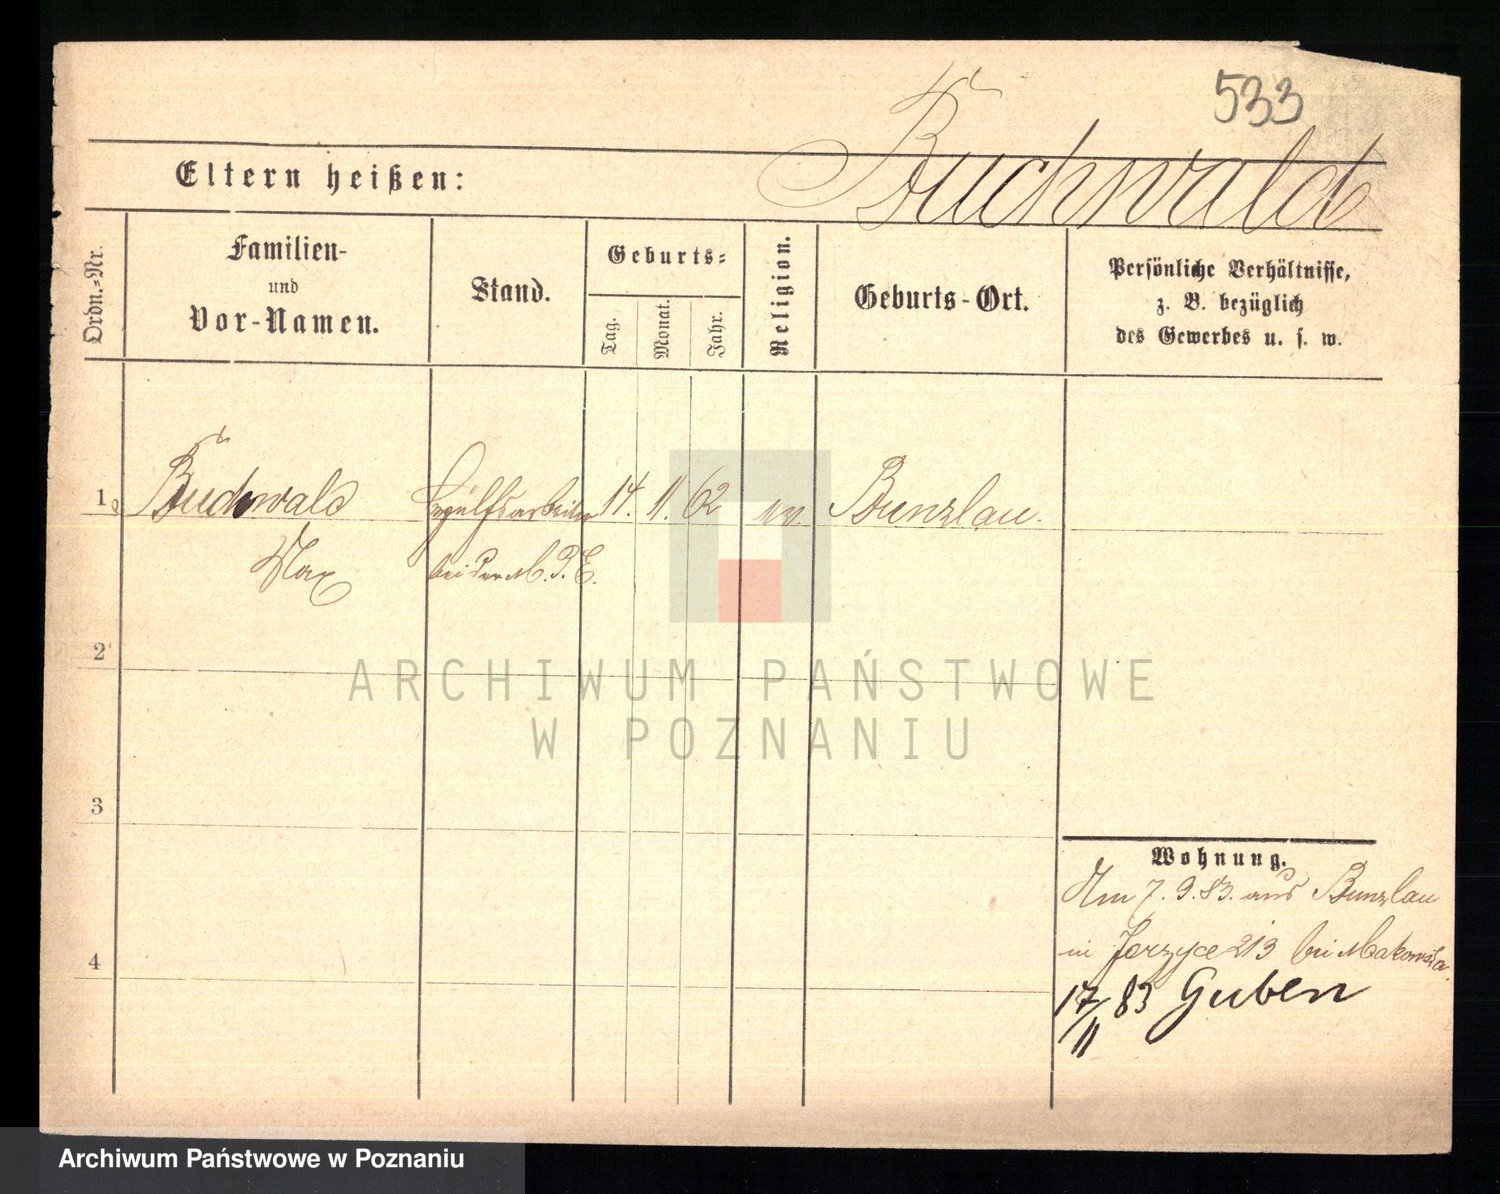 533
Buchwald
Eltern heißen:
Ordn.-Nr.
Familien-
und
Vor-Namen.
Stand.
Geburts-
Tag.
Monat.
Jahr.
Religion.
Geburts-Ort.
Persönliche Verhältnisse,
z. B. bezüglich
des Gewerbes u. s. w.
1 Buchwald Hülfsarbeiter 14. 11. 62 ev. Bunzlau.
Max bei der M. P. E.
2
3
4
ARCHIWUM PAŃSTWOWE
W POZNANIU
Wohnung.
Am 7. 9. 83. aus Bunzlau
in Jerzyce 213 bei Makowska.
17/11 83 Guben
Archiwum Państwowe w Poznaniu